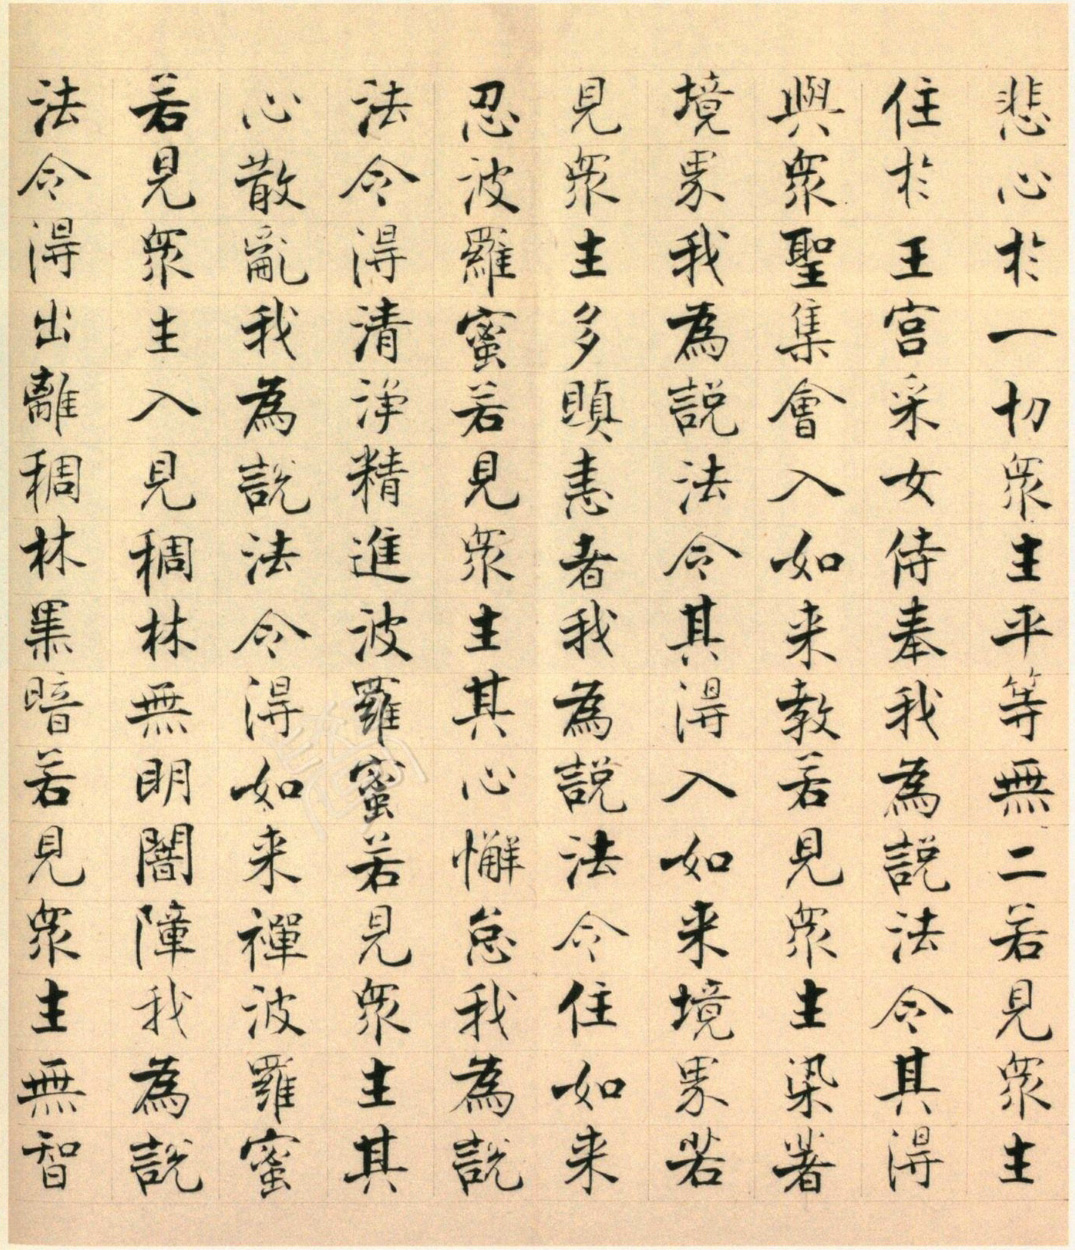 悲心於一切眾生平等無二若見眾生
住於王宮采女侍奉我為說法令其得
與眾聖集會入如来教若見眾生染著
境界我為說法令其得入如来境界若
見眾生多瞋恚者我為說法令住如来
忍波羅蜜若見眾生其心懈怠我為說
法令得清淨精進波羅蜜若見眾生其
心散亂我為說法令得如来禪波羅蜜
若見眾生入見稠林無明闇障我為說
法令得出離稠林黑暗若見眾生無智